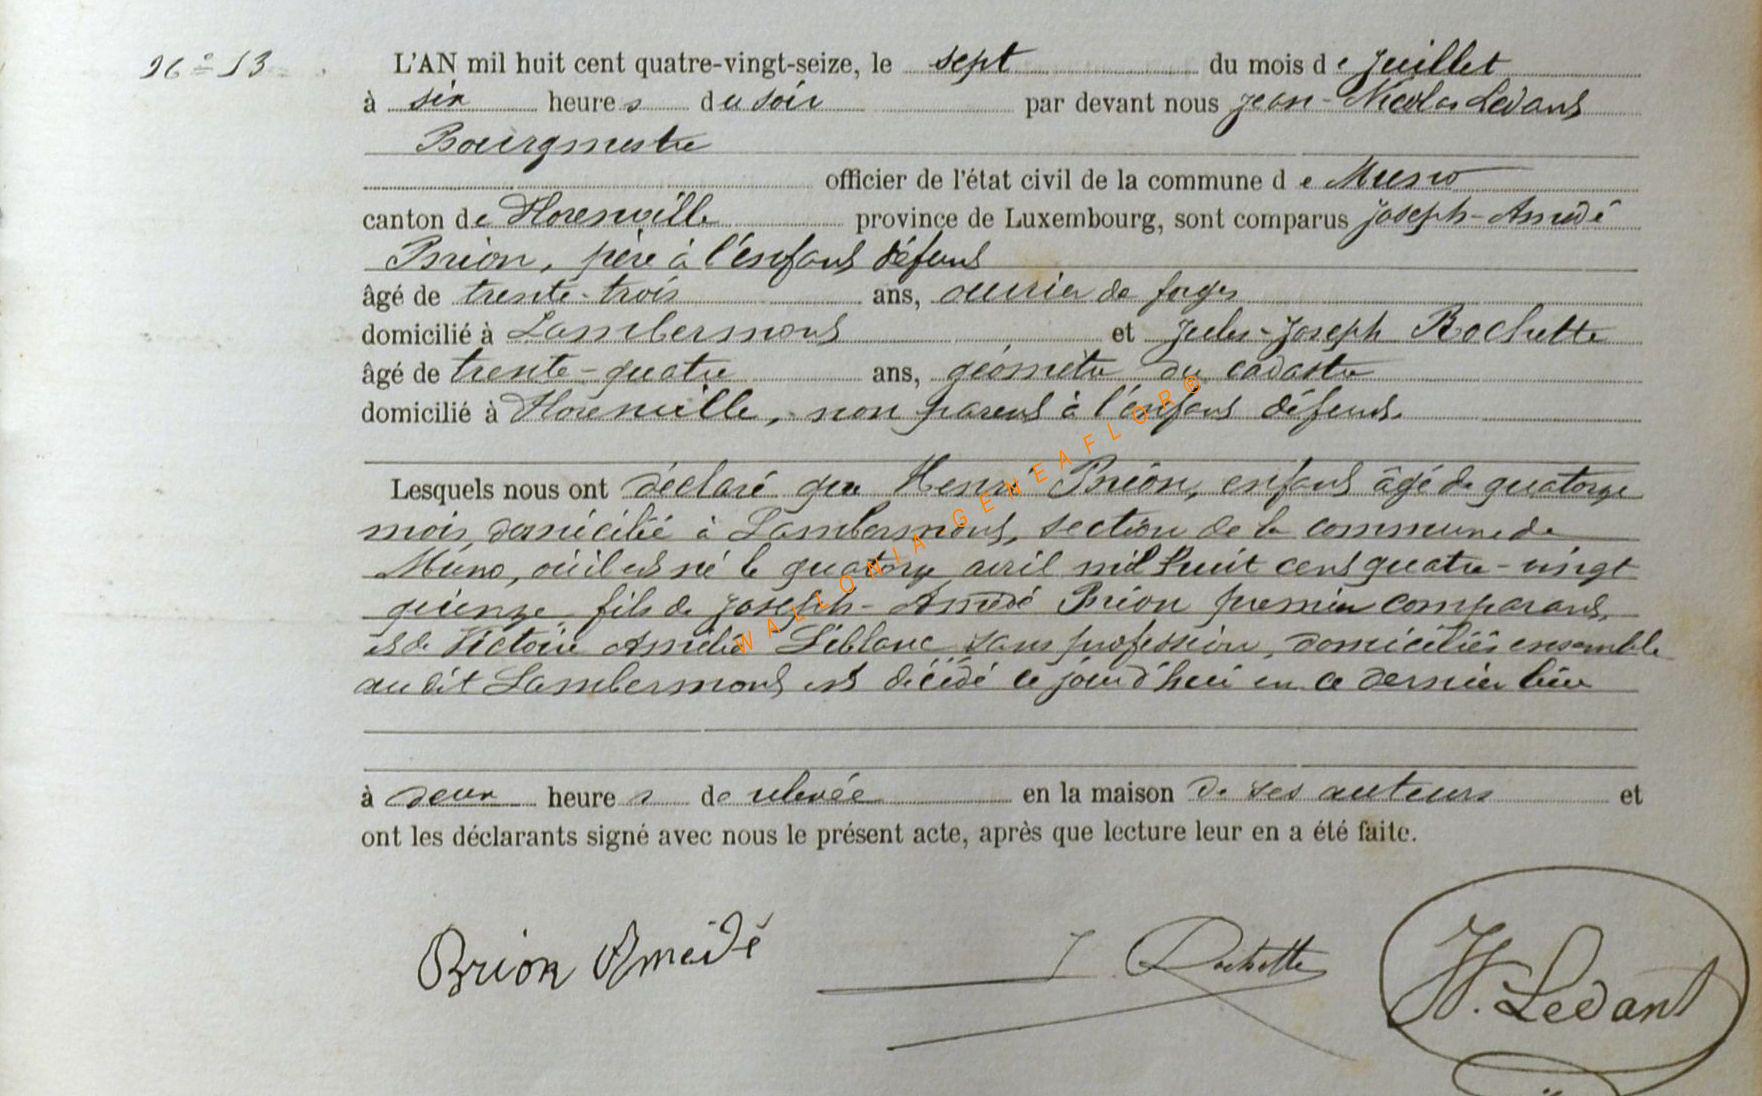 N° 13
L'AN mil huit cent quatre-vingt-seize, le sept du mois de Juillet
à six heures du soir par devant nous Jean-Nicolas Ledant
Bourgmestre
officier de l'état civil de la commune de Muno
canton de Florenville province de Luxembourg, sont comparus Joseph-Amédé
Brion, père à l'enfant défunt
âgé de trente-trois ans, ouvrier de forges
domicilié à Lambermont et Jules-Joseph Rochette
âgé de trente-quatre ans, géomètre du cadastre
domicilié à Florenville, non parent à l'enfant défunt.
Lesquels nous ont déclaré que Henri Brion, enfant âgé de quatorze
mois, domicilié à Lambermont, section de la commune de
Muno, où il est né le quatorze avril mil huit cent quatre-vingt
quinze, fils de Joseph-Amédé Brion premier comparant,
et de Victoire Amélie Leblanc sans profession, domiciliés ensemble
au dit Lambermont est décédé ce jourd'hui en ce dernier lieu
à deux heures de relevée en la maison de ses auteurs et
ont les déclarants signé avec nous le présent acte, après que lecture leur en a été faite.
Brion Amédé J Rochette N. Ledant
WALLONIA GENEAFLOR®